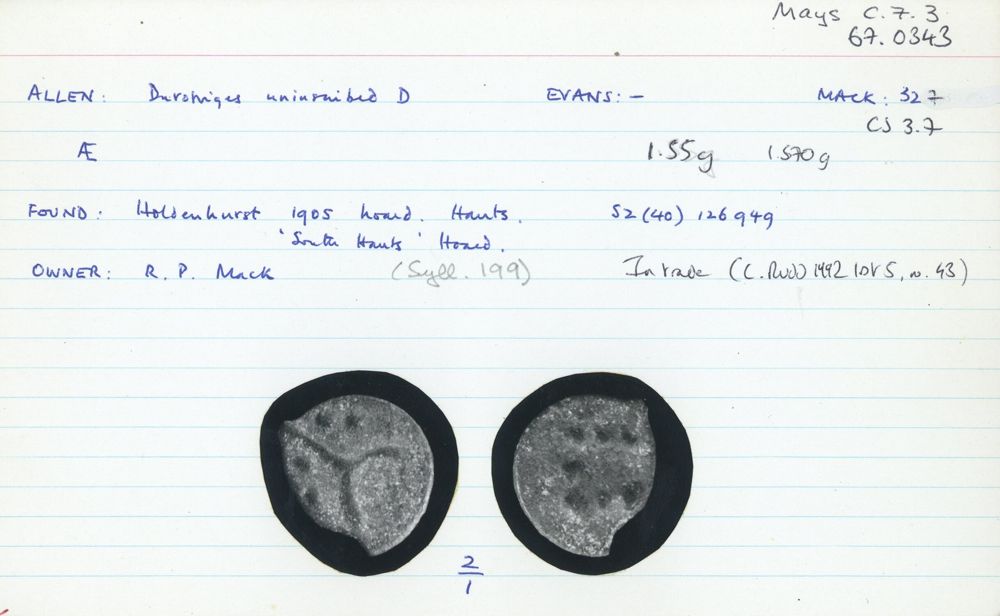 Mays C.7.3
67.0343
ALLEN: Durotriges uninscribed D EVANS: — MACK: 327
CJ 3.7
Æ 1.55g 1.570g
FOUND: Holdenhurst 1905 hoard. Hants. SZ(40) 126949
'South Hants' Hoard.
OWNER: R. P. Mack (Syll. 199) In trade (C. Rudd 1992 list 5, no. 43)
2
1